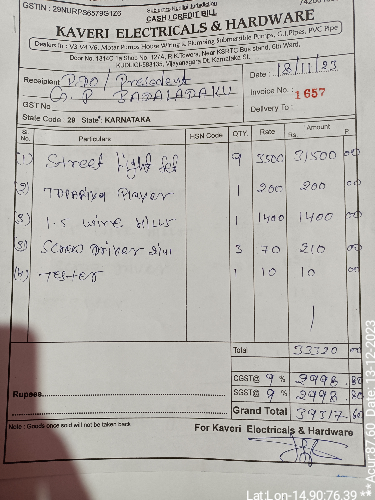 GSTIN : 29NURPS6579G1Z6
CASH / CREDIT BILL
KAVERI ELECTRICALS & HARDWARE
Dealers In : V3 V4 V6, Motor Pumps House Wiring & Plumbing Submersible Pumps, G.I.Pipes, PVC Pipe
K.R.Towers, Near KSRTC Bus stand, 6th Ward,
KUDLIGI-583135, Vijayanagara Dt. Karnataka St.
Receipient PDO / President
G. P
GST No
Date : 18/11/23
Invoice No. : 1657
Delivery To :
State Code : 29 State : KARNATAKA
Sl. No. Particulars HSN Code QTY. Rate Amount
Rs. P.
(1) Street light 9 3500 31500 00
(2) 1 200 200 00
(3) wire 1 1400 1400 00
(3) Screw Driver 3 70 210 00
Tester 1 10 10 00
Total 33320 00
CGST@ 9 % 2998 .80
SGST@ 9 % 2998 .80
Rupees
Grand Total 39317-60
Note : Goods once sold will not be taken back
For Kaveri Electricals & Hardware
Lat:Lon-14.90:76.39 **Acur:87.60 Date,13-12-2023